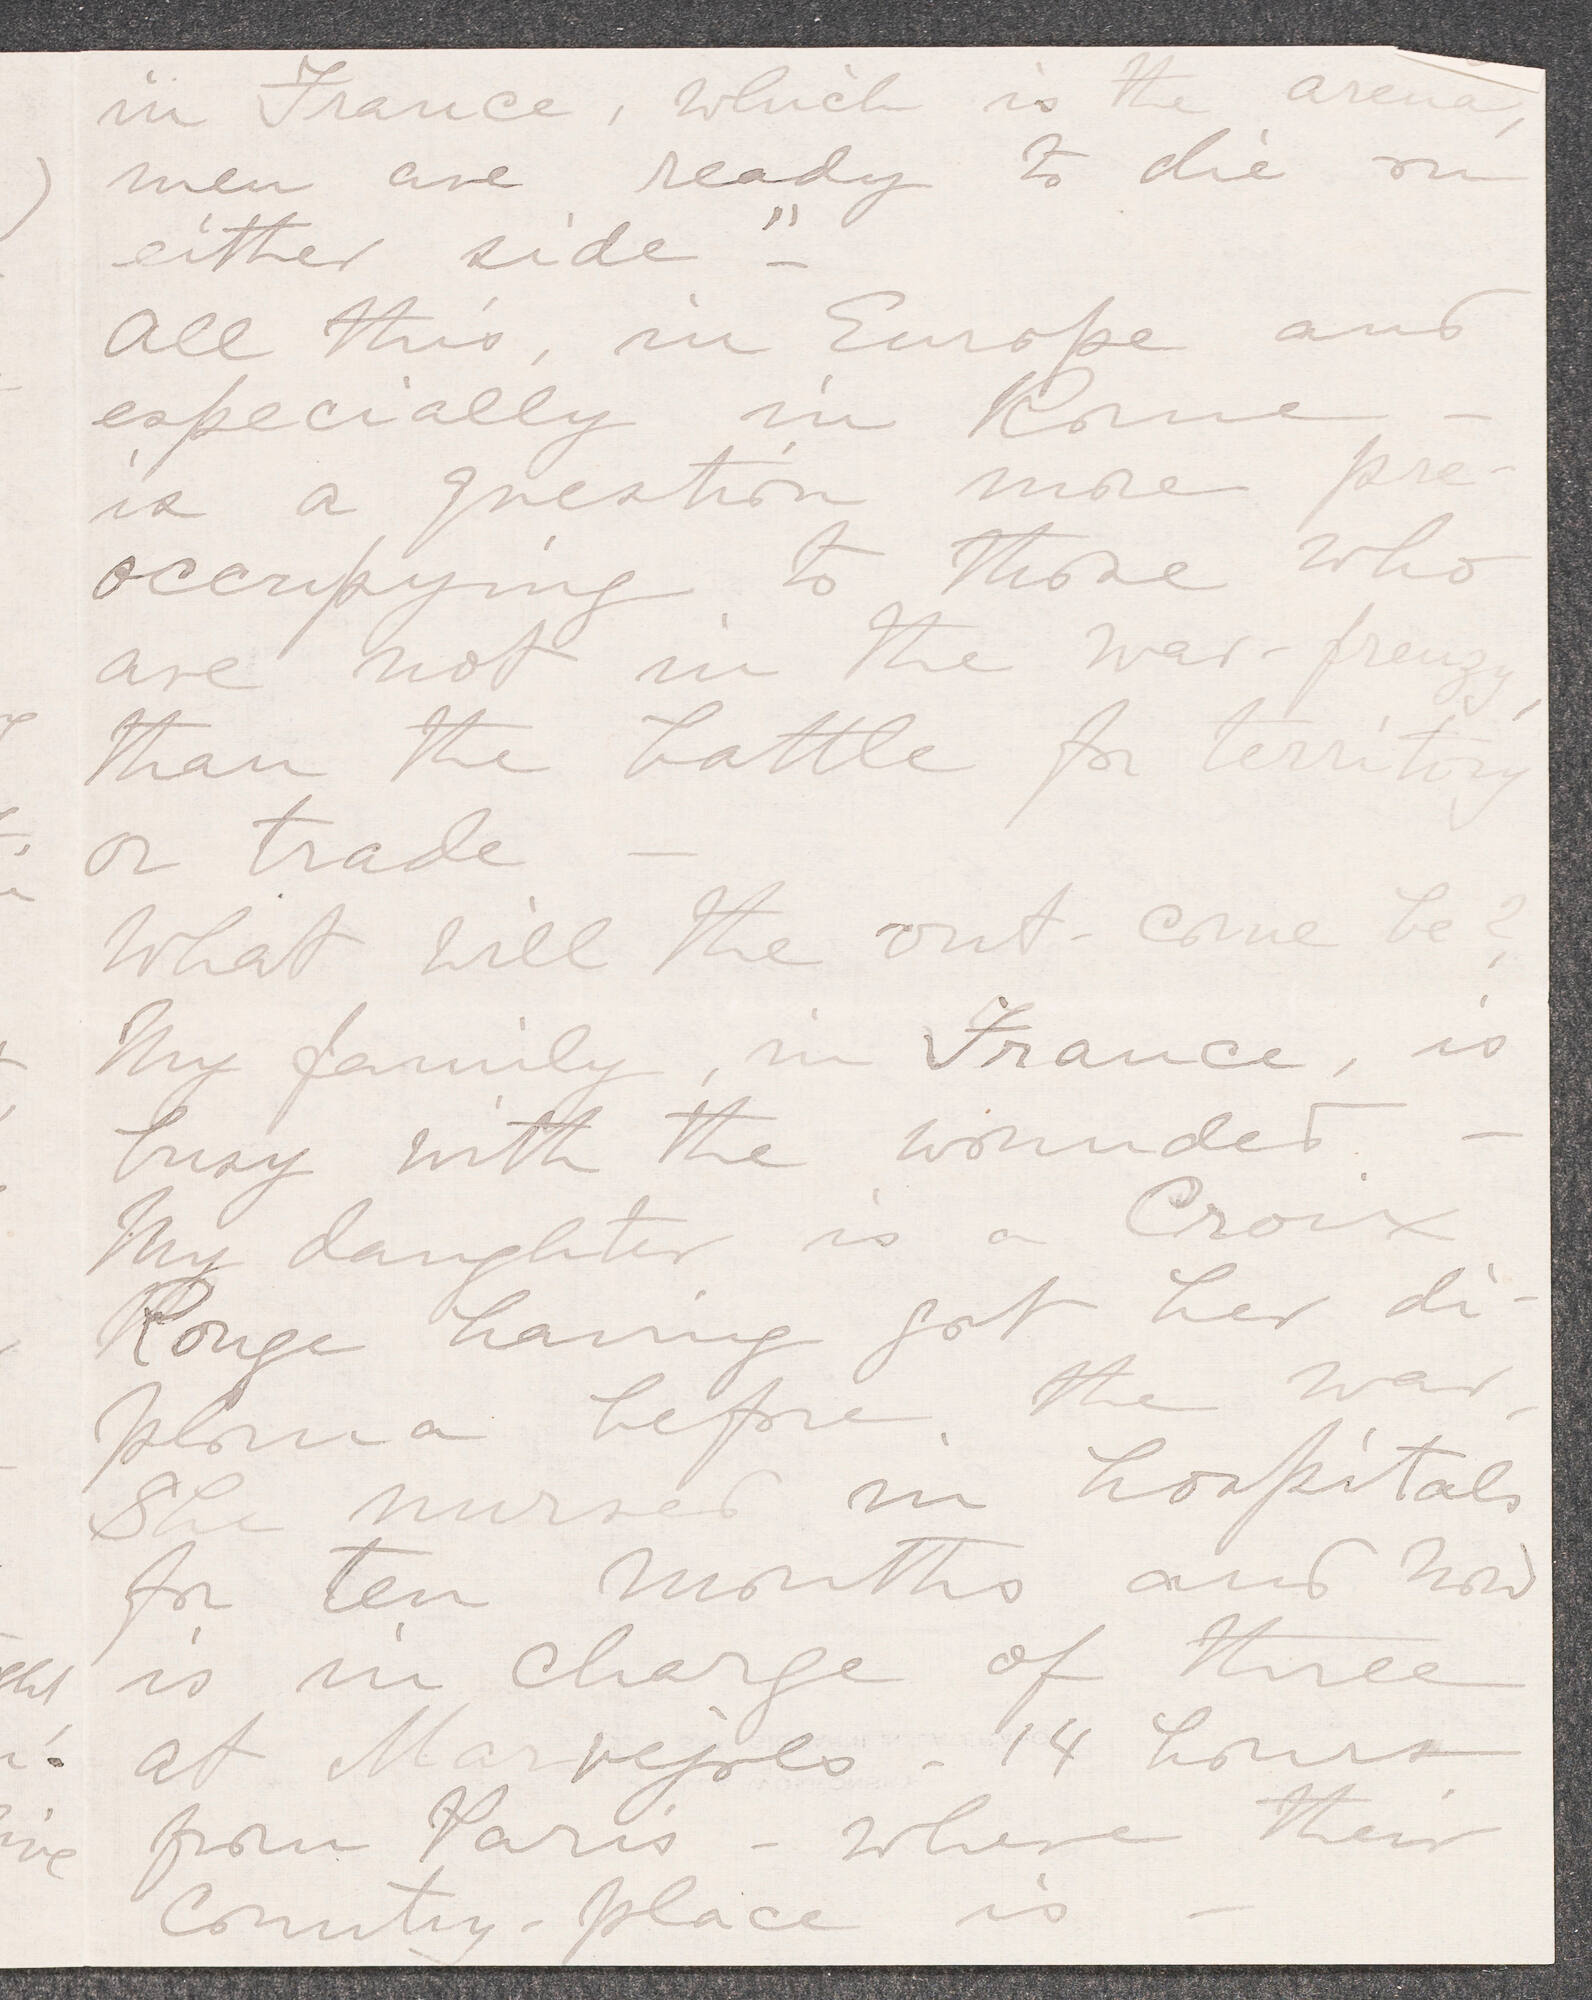 in France, which is the arena,
men are ready to die on
either side" –
All this, in Europe and
especially in Rome –
is a question more pre-
occupying to those who
are not in the war-frenzy,
than the battle for territory
or trade –
What will the out-come be?
My family, in France, is
busy with the wounded –
My daughter is a Croix
Rouge having got her di-
ploma before the war.
She nursed in hospitals
for ten months and now
is in charge of three
at Marvejols – 14 hours
from Paris – where their
country-place is –